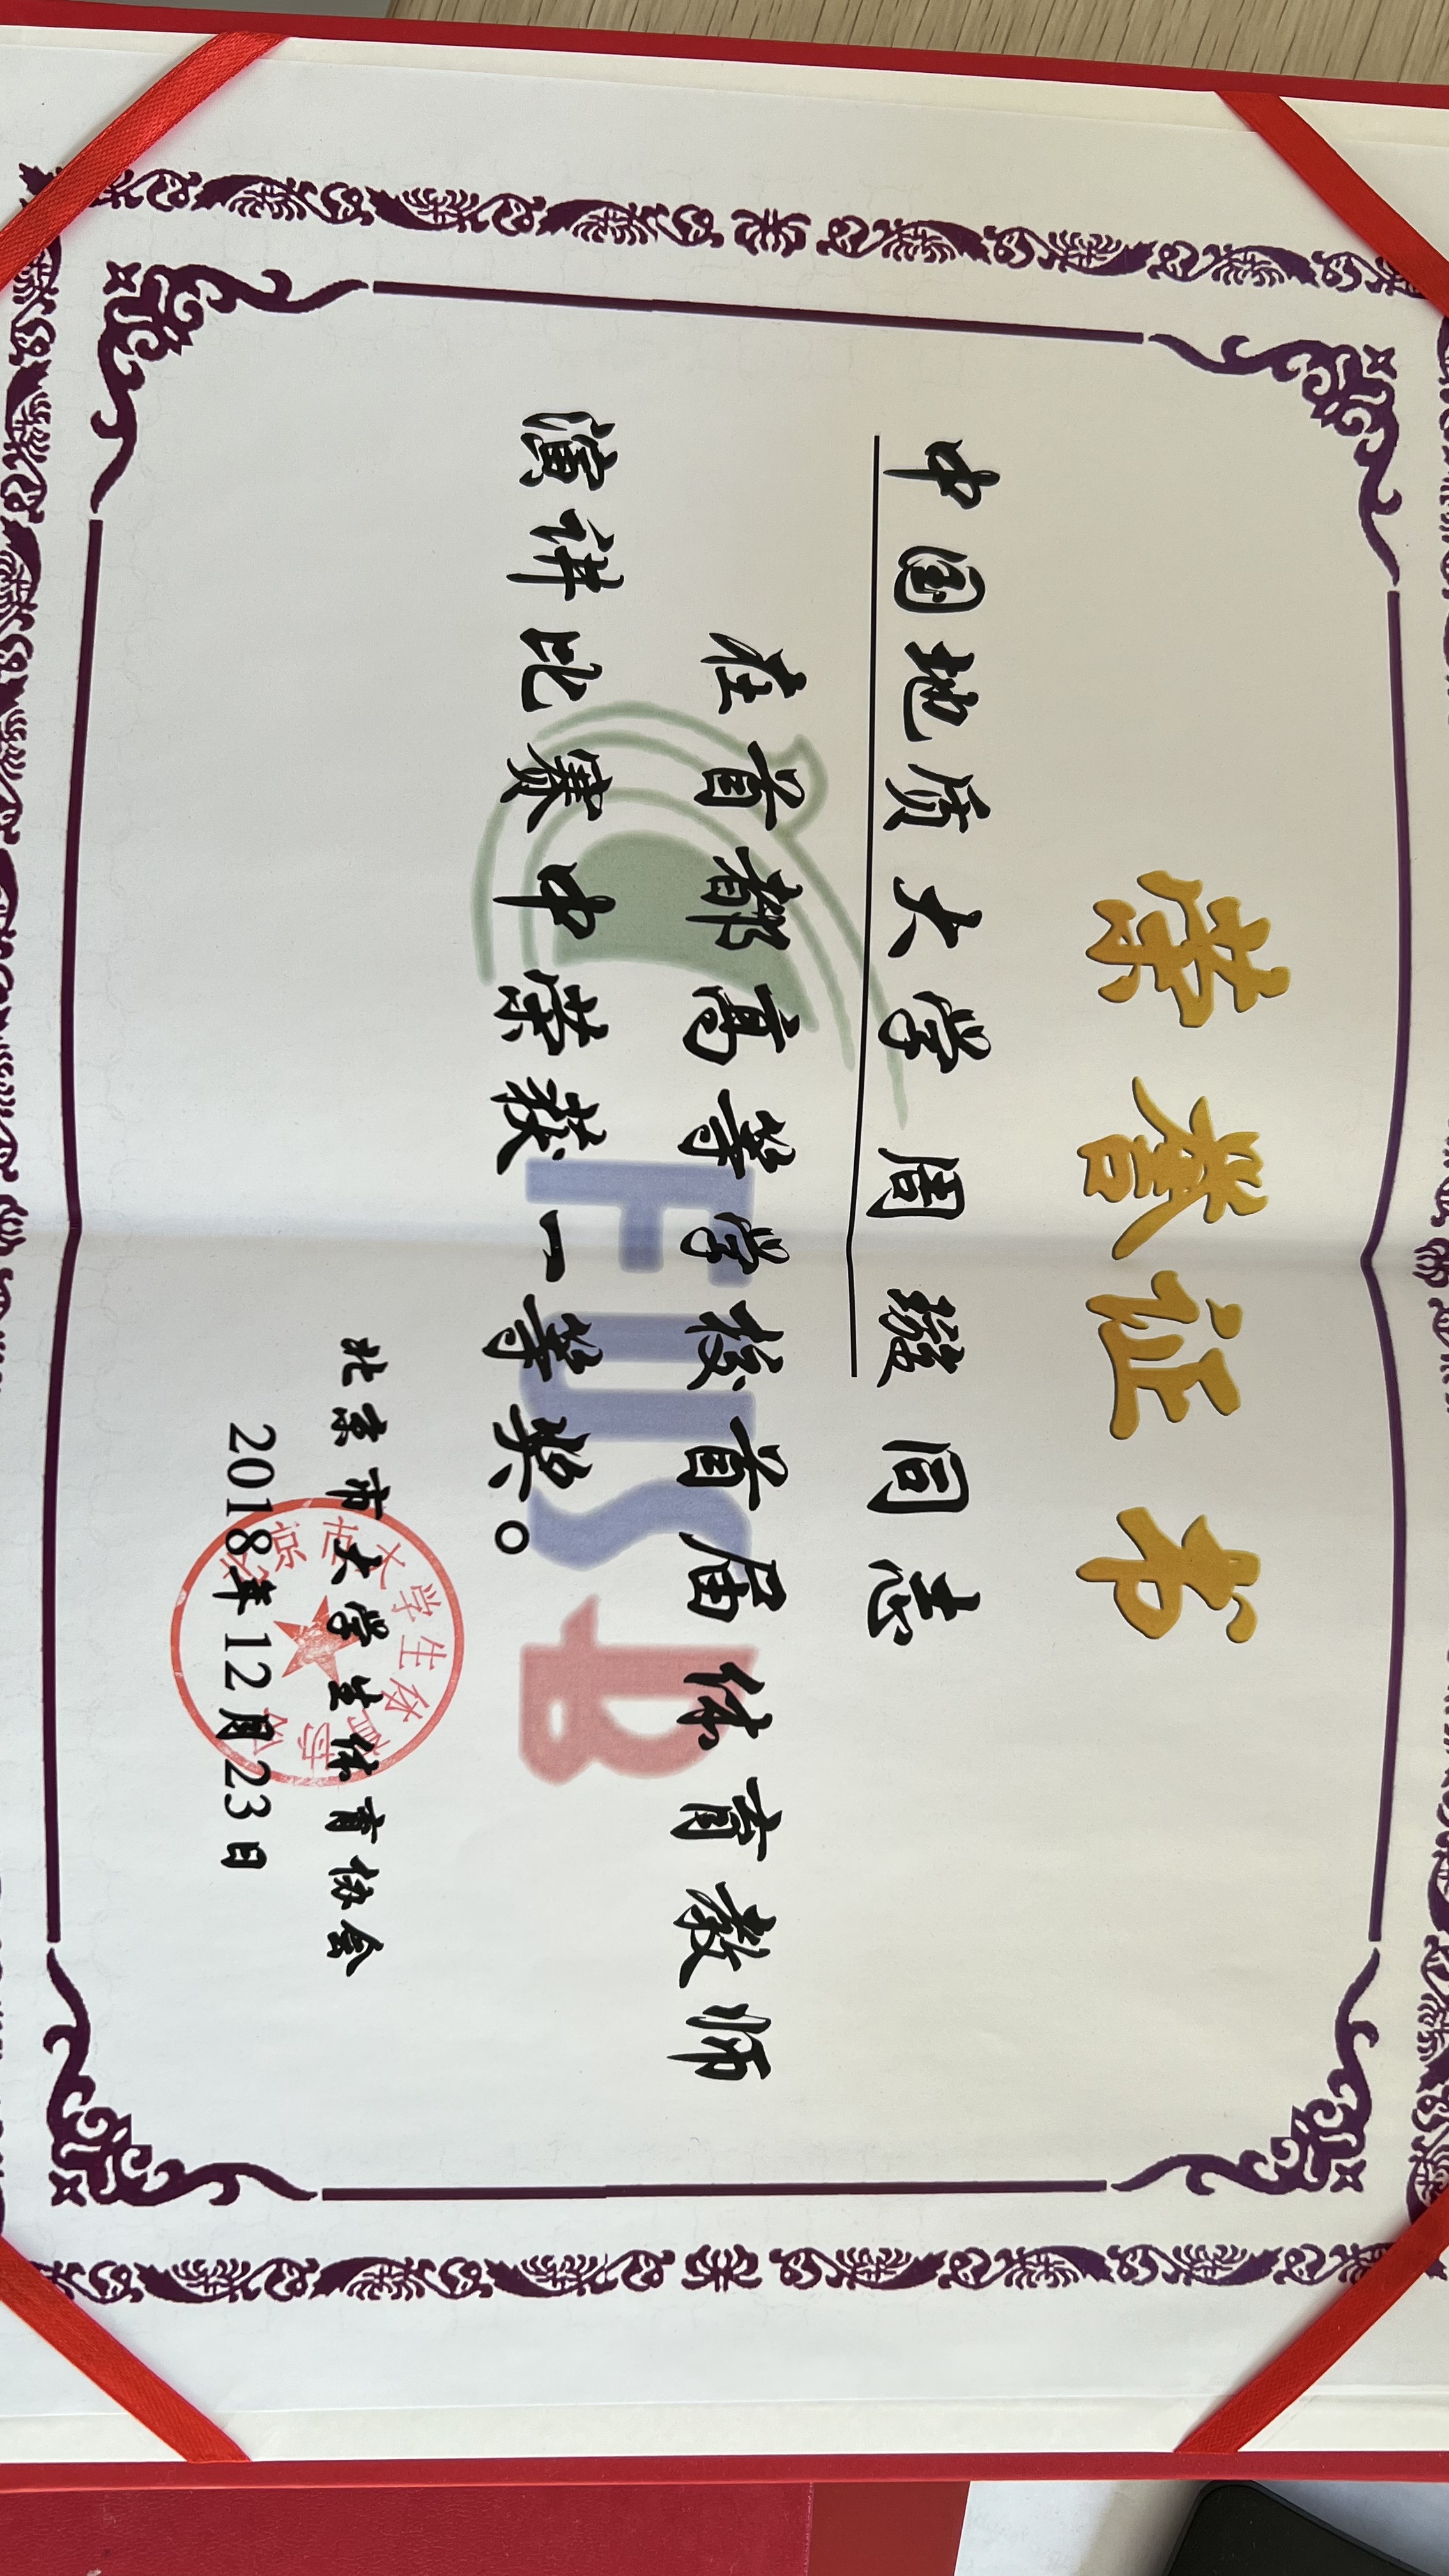 荣誉证书
中国地质大学周 同志
在首都高等学校首届体育教师
演讲比赛中荣获一等奖。
FUSB
北京市大学生体育协会
2018年12月23日
北京市大学生体育协会